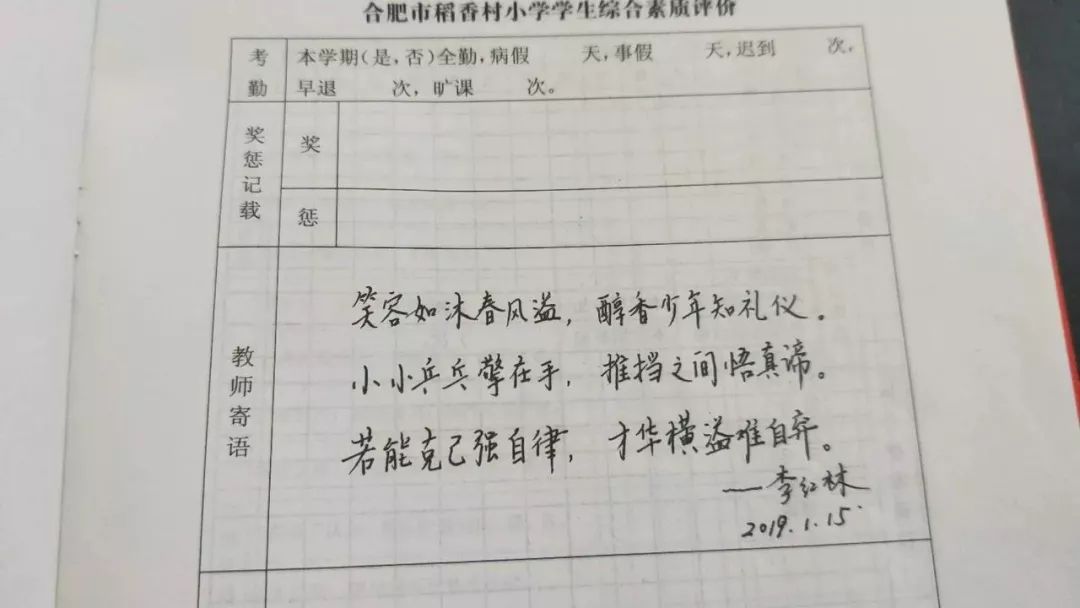 合肥市稻香村小学学生综合素质评价
考勤
本学期(是,否)全勤,病假 天,事假 天,迟到 次,
早退 次,旷课 次。
奖惩记载
奖
惩
教师寄语
笑容如沐春风溢，醇香少年知礼仪。
小小乒乓擎在手，推挡之间悟真谛。
若能克己强自律，才华横溢难自弃。
——李红林
2019.1.15